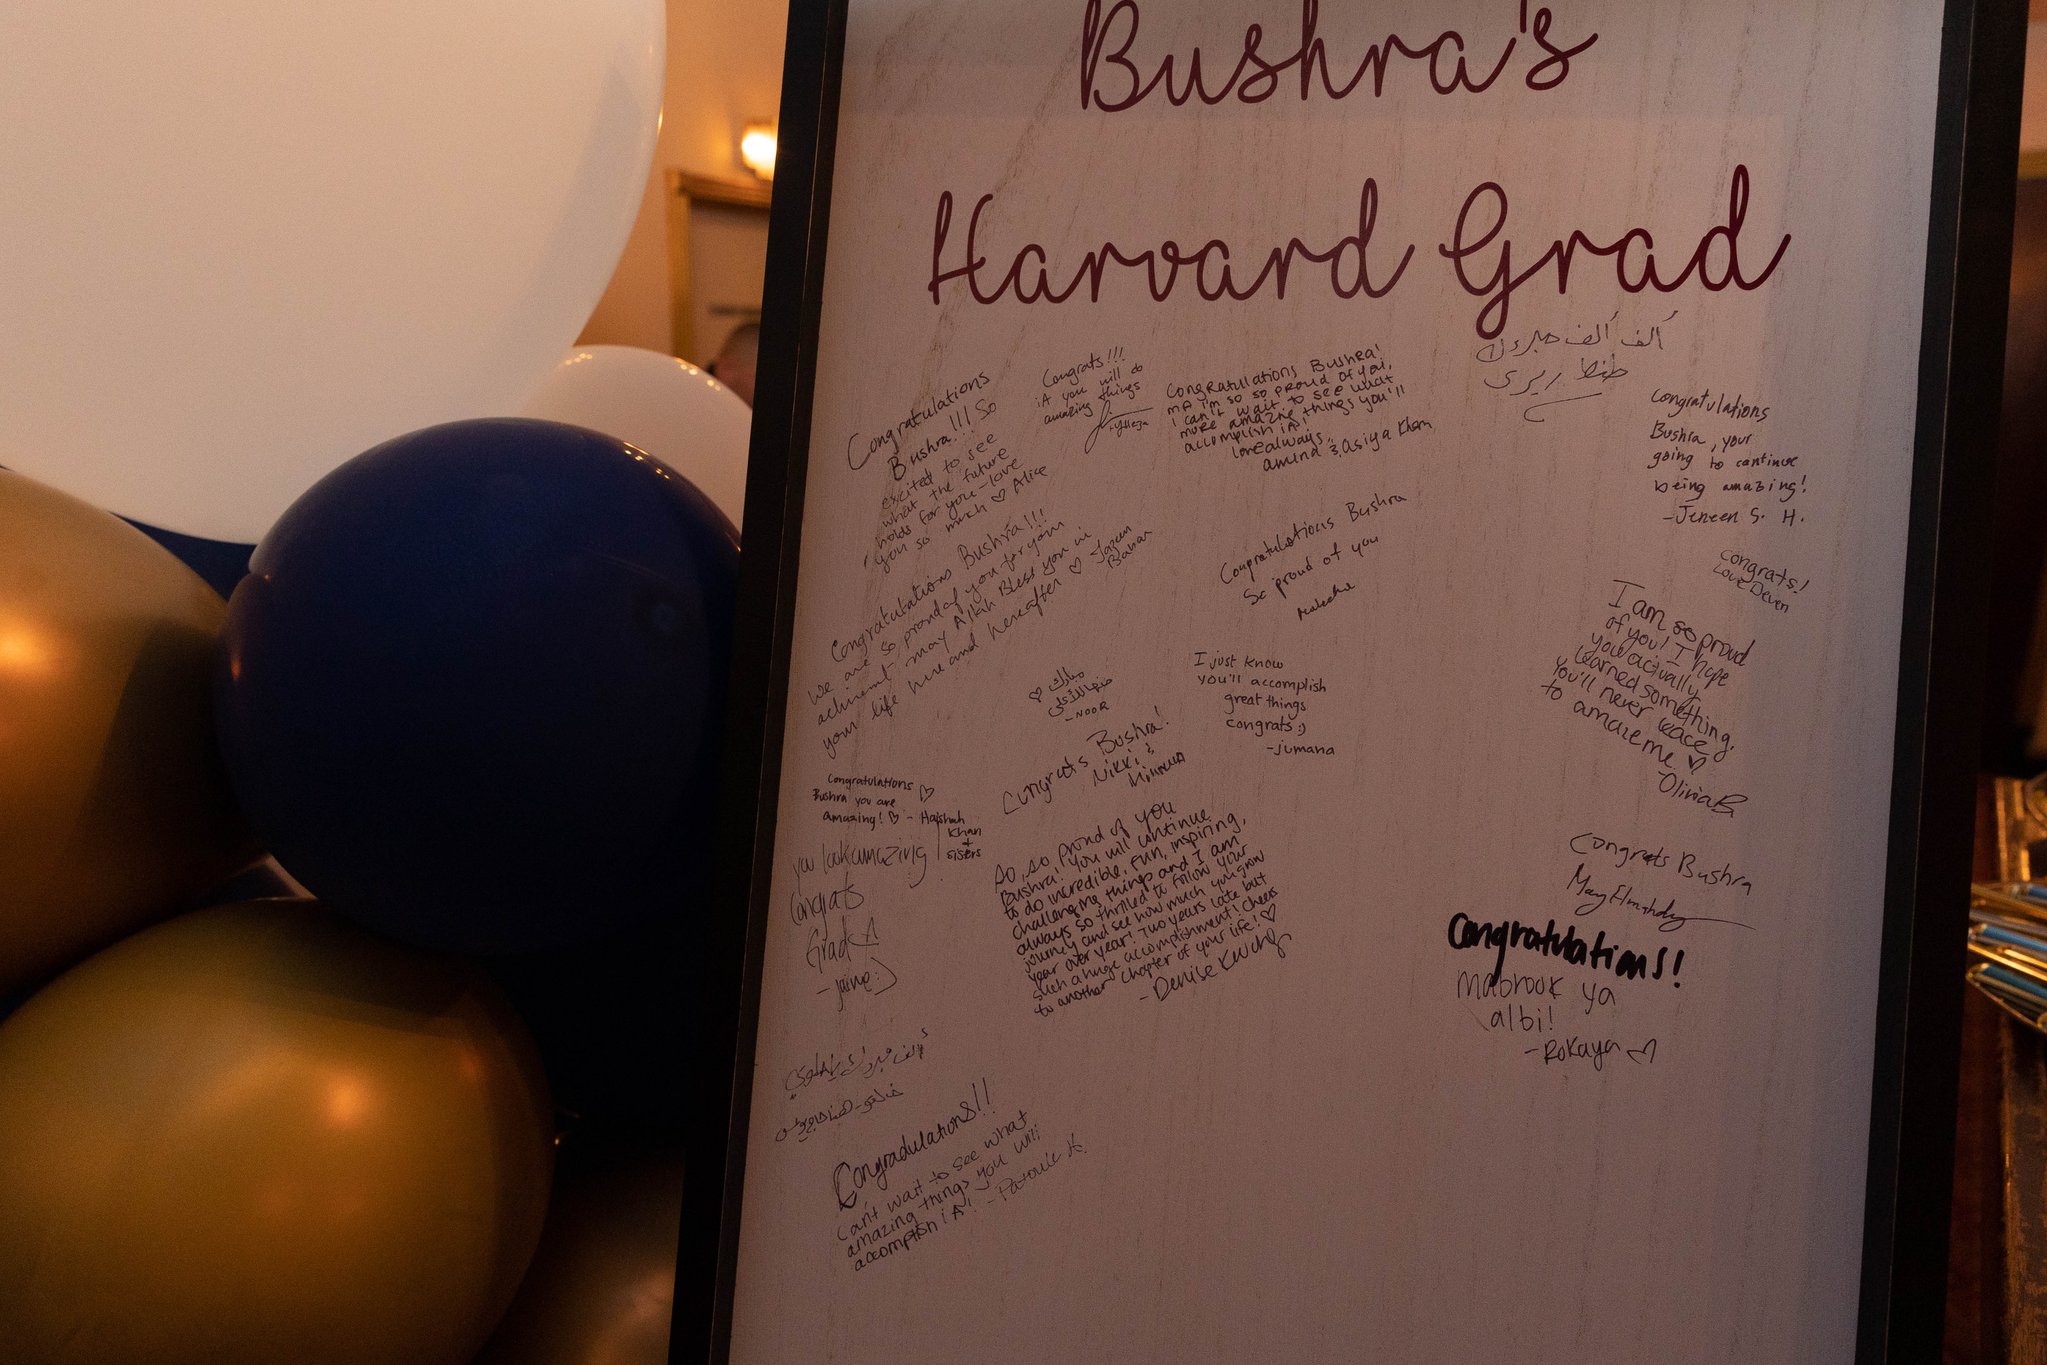 Bushra's
Harvard Grad
Congratulations
Bushra!!! So
excited to see
what the future
holds for you - love
you so much ♡ Alice
Congrats!!!
iA you will do
amazing things
Congratulations Bushra!
MA I'm so so proud of you,
I can't wait to see what
more amazing things you'll
accomplish iA!
Love always,
Amina & Asiya Khan
ألف ألف مبروك
Congratulations
Bushra, your
going to continue
being amazing!
- Jeneen S. H.
Congrats!
Love Deven
Congratulations Bushra!!!
We are so proud of you for you
achivment may Allah Bless you in
your life here and hereafter ♡
Babar
Congratulations Bushra
So proud of you
I am so proud
of you! I hope
you actually
learned something.
You'll never cease
to amaze me ♡
- Olivia B
مبارك ♡
- NOOR
I just know
you'll accomplish
great things
congrats :)
- jumana
Congrats Bushra!
Nikki &
Congratulations ♡
Bushra you are
amazing! ♡ -
Khan
+
sisters
you look amazing
Congrats
Grad
- jaime :)
So, so proud of you
Bushra! You will continue
to do incredible, fun, inspiring,
challenging things and I am
always so thrilled to follow your
journey and see how much you grow
year over year! Two years late but
such a huge accomplishment! Cheers
to another chapter of your life! ♡
- Denise
Congrats Bushra
May
Congratulations!
Mabrook ya
albi!
- Rokaya ♡
الف مبروك
Congradulations!!
Can't wait to see what
amazing things you will
accomplish iA! -